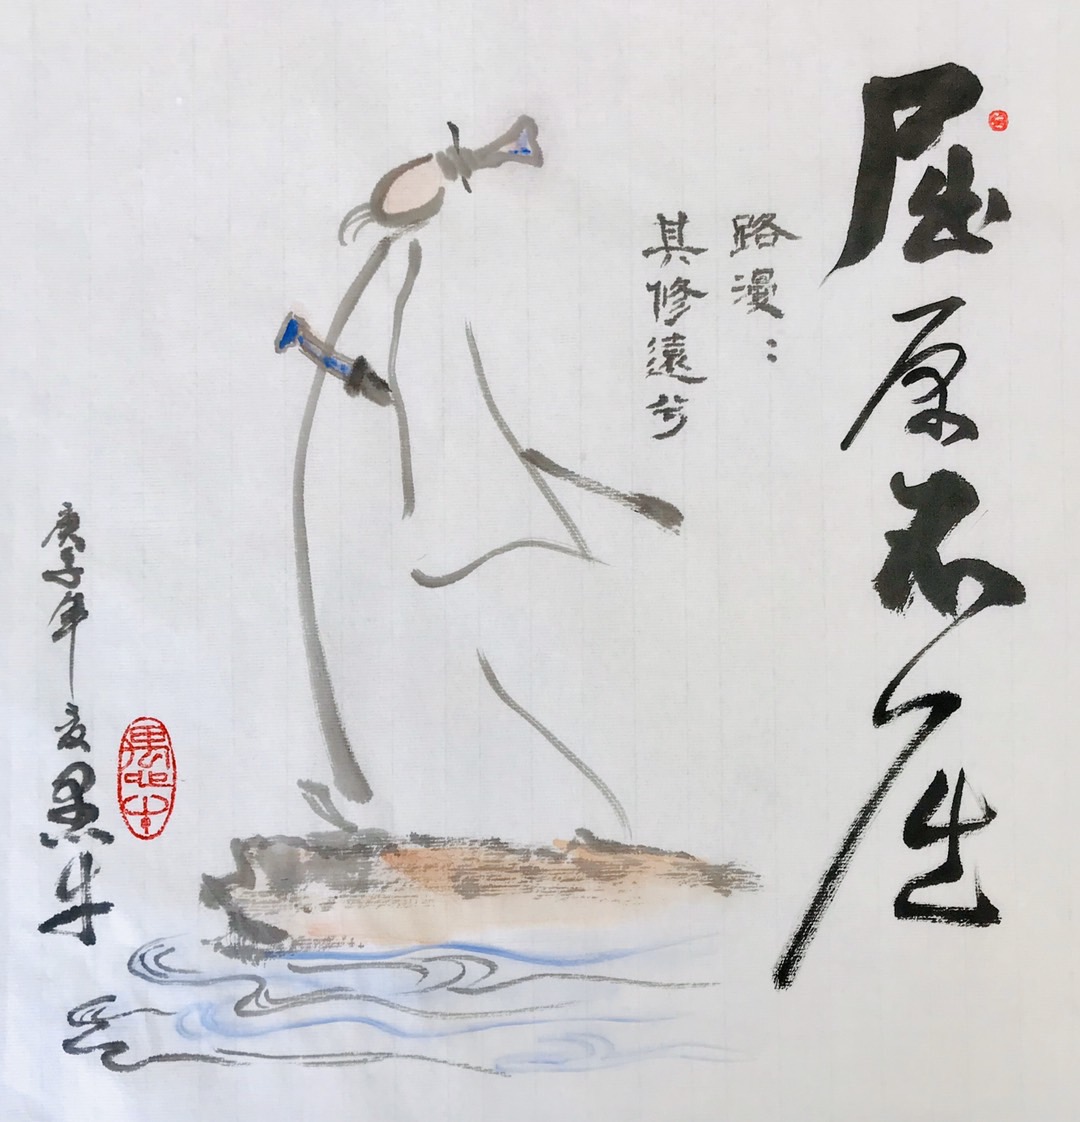 屈原不屈
路漫：
其修遠兮
庚子年夏黑牛